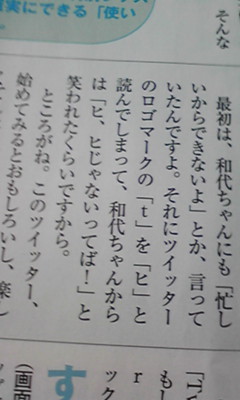 実にできる「使い
そんな
最初は、和代ちゃんにも「忙し
いからできないよ」とか、言って
いたんですよ。それにツイッター
のロゴマークの「t」を「ヒ」と
読んでしまって、和代ちゃんから
は「ヒ、ヒじゃないってば！」と
笑われたくらいですから。
ところがね。このツイッター、
始めてみるとおもしろいし、楽し
す
（画面
ック
r
もし